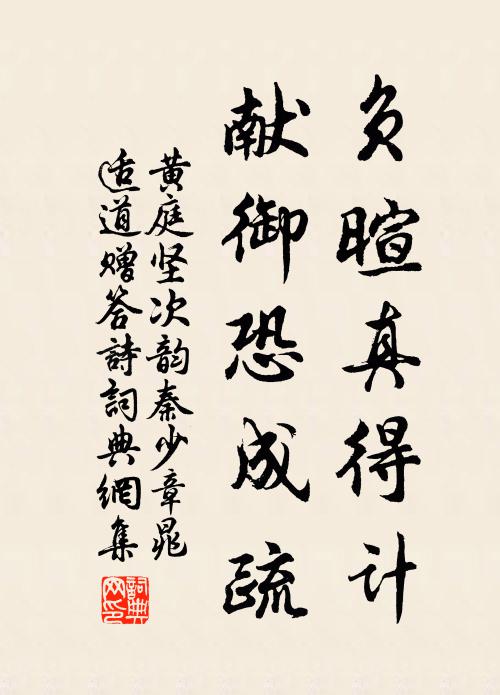 负暄真得计
献御恐成疏
黄庭坚次韵秦少章晁
适道赠答詩詞典網集
詞典
网印